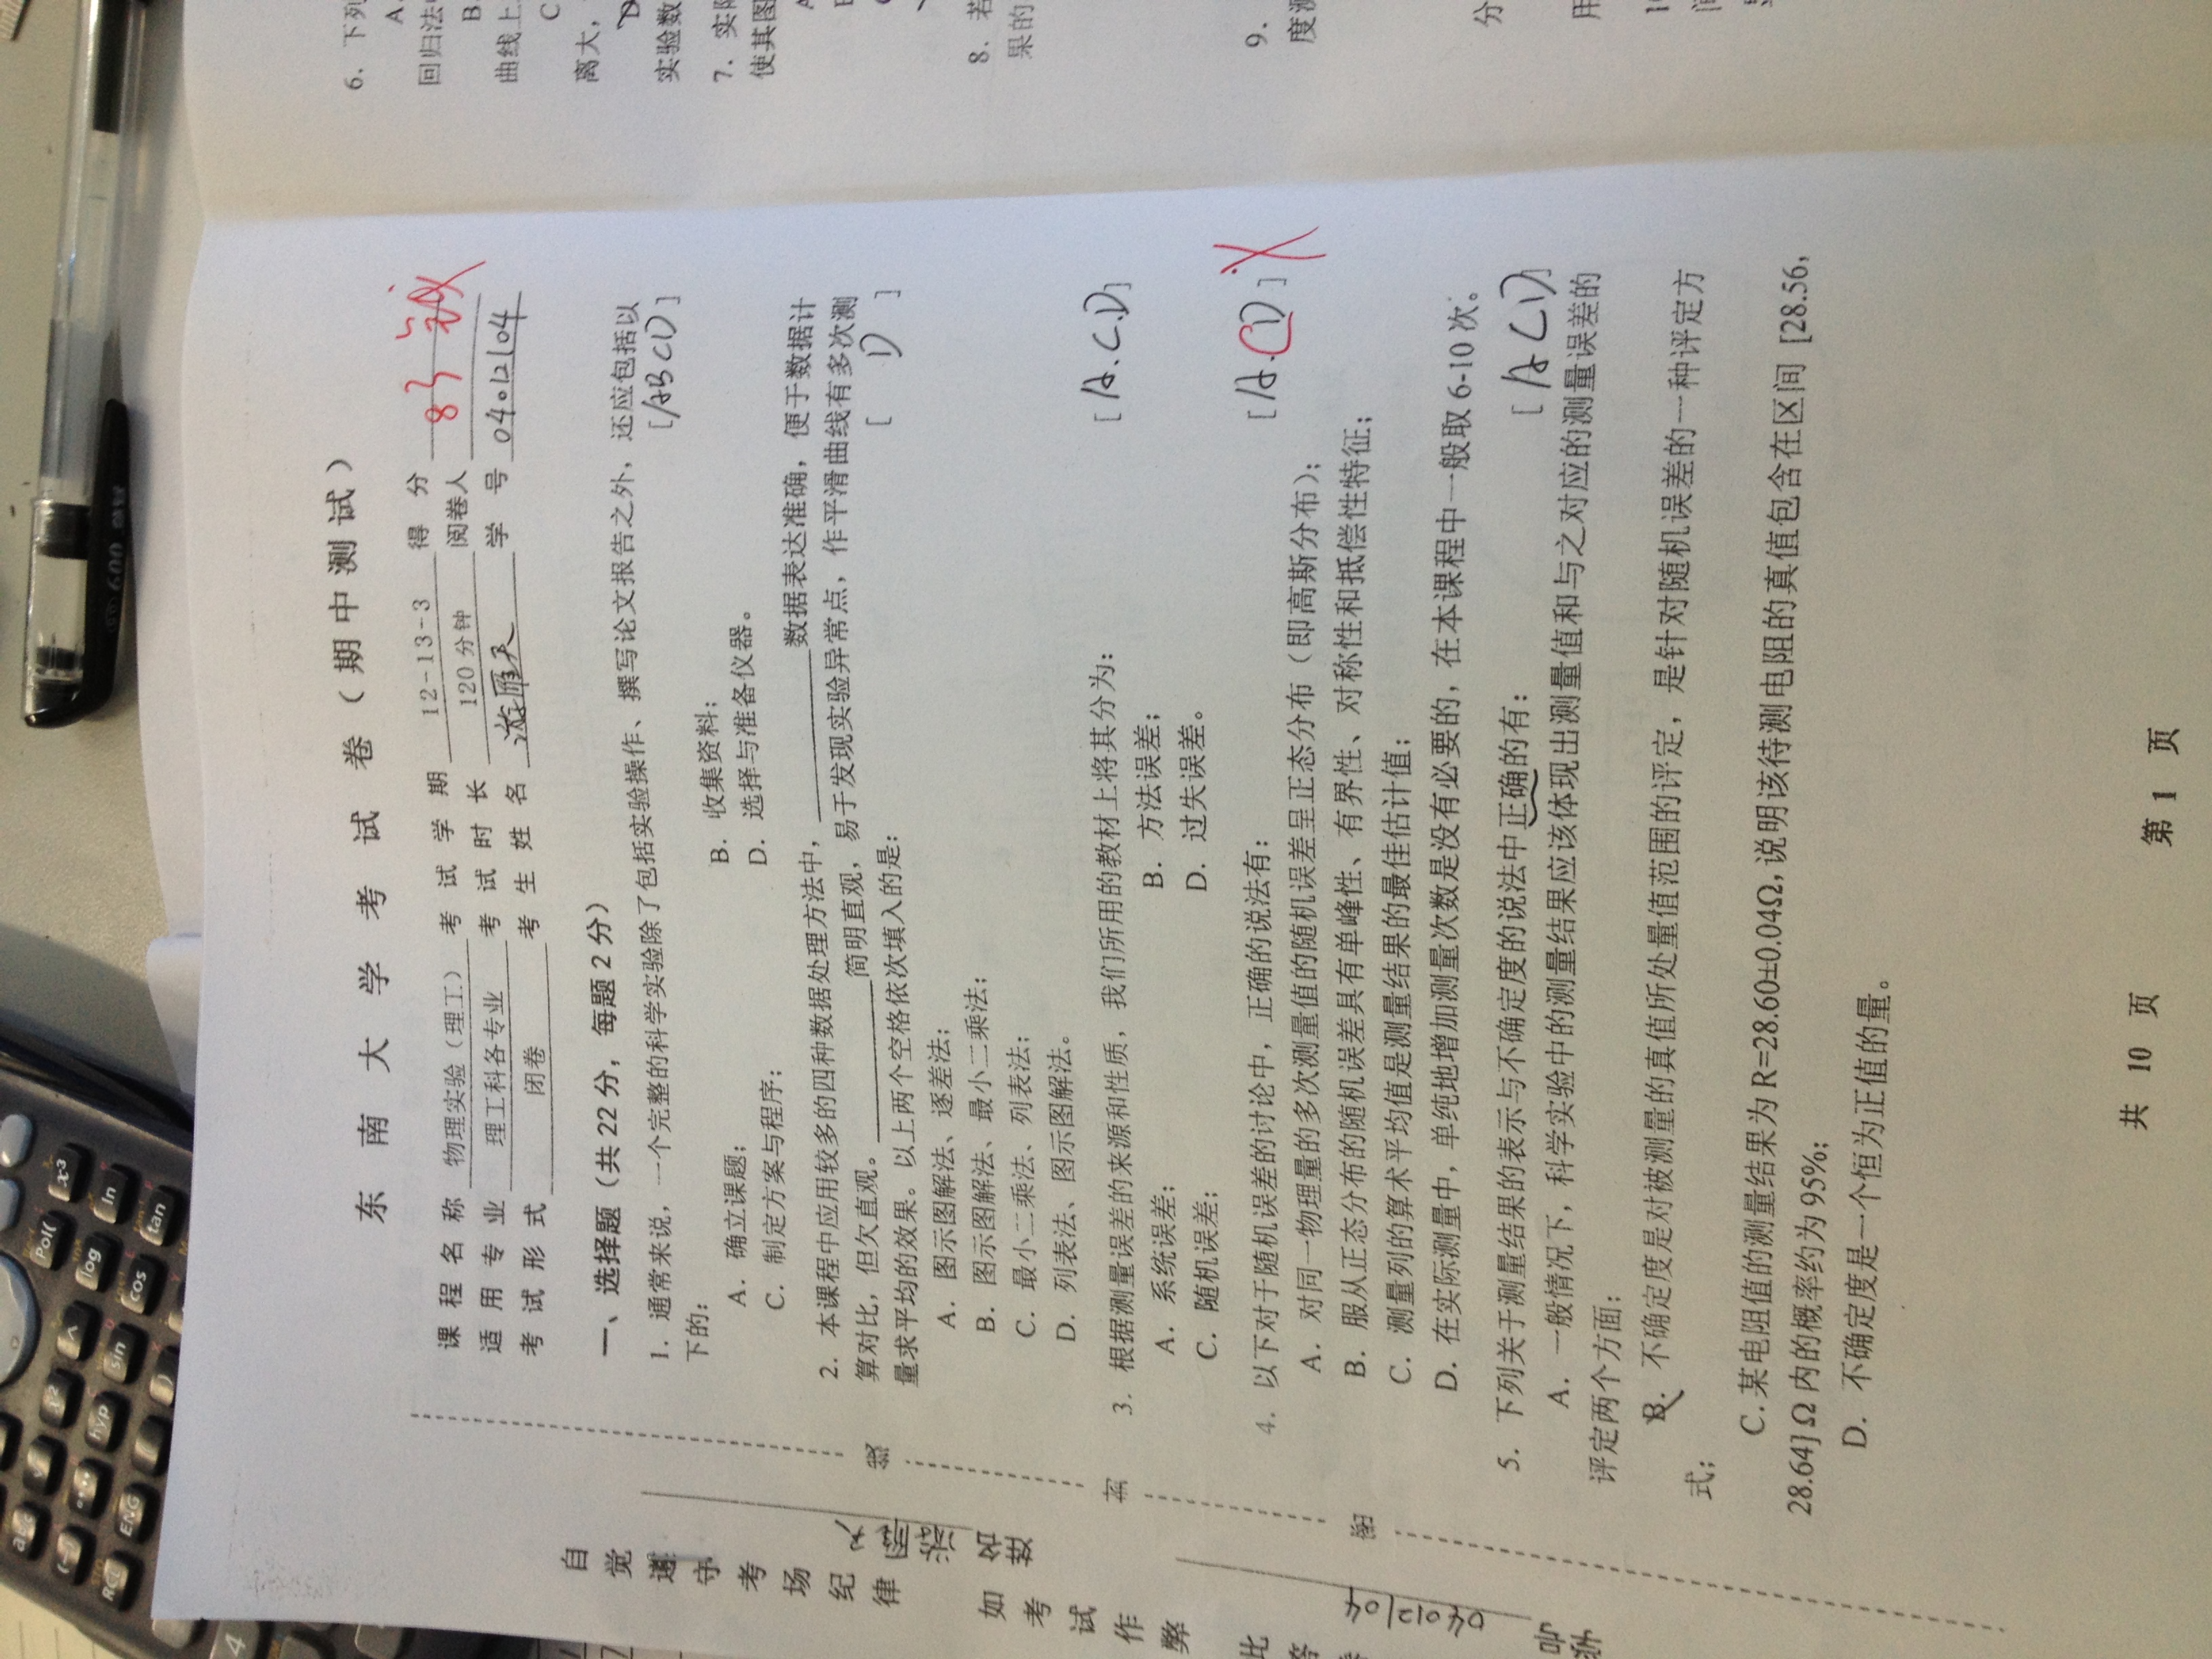 abc
x²
^
Pol(
x³
(-)
hyp
sin
log
ln
RCL
ENG
cos
tan
)
4
600
东南大学考试卷（期中测试）
课程名称 物理实验（理工） 考试学期 12-13-3 得分 83
适用专业 理工科各专业 考试时长 120分钟 阅卷人
考试形式 闭卷 考生姓名 游雁天 学号 04012104
一、选择题（共22分，每题2分）
1. 通常来说，一个完整的科学实验除了包括实验操作、撰写论文报告之外，还应包括以
下的： [ABCD]
A. 确立课题； B. 收集资料；
C. 制定方案与程序； D. 选择与准备仪器。
2. 本课程中应用较多的四种数据处理方法中，____________数据表达准确，便于数据计
算对比，但欠直观。____________简明直观，易于发现实验异常点，作平滑曲线有多次测
量求平均的效果。以上两个空格依次填入的是： [ D ]
A. 图示图解法、逐差法；
B. 图示图解法、最小二乘法；
C. 最小二乘法、列表法；
D. 列表法、图示图解法。
3. 根据测量误差的来源和性质，我们所用的教材上将其分为： [A.C.D]
A. 系统误差； B. 方法误差；
C. 随机误差； D. 过失误差。
4. 以下对于随机误差的讨论中，正确的说法有： [A.CD]
A. 对同一物理量的多次测量值的随机误差呈正态分布（即高斯分布）；
B. 服从正态分布的随机误差具有单峰性、有界性、对称性和抵偿性特征；
C. 测量列的算术平均值是测量结果的最佳估计值；
D. 在实际测量中，单纯地增加测量次数是没有必要的，在本课程中一般取 6-10 次。
5. 下列关于测量结果的表示与不确定度的说法中正确的有： [ACD]
A. 一般情况下，科学实验中的测量结果应该体现出测量值和与之对应的测量误差的
评定两个方面；
B. 不确定度是对被测量的真值所处量值范围的评定，是针对随机误差的一种评定方
式；
C. 某电阻值的测量结果为 R=28.60±0.04Ω，说明该待测电阻的真值包含在区间 [28.56,
28.64] Ω 内的概率约为 95%；
D. 不确定度是一个恒为正值的量。
共 10 页 第 1 页
自觉遵守考场纪律 如考试作弊 此答
姓名 游雁天
学号 04012104
线
封
密
6. 下列
A.
回归法
B.
曲线上
C
离大，
D
实验数
7. 实际
使其图
8. 若
果的
9.
度测
分
用